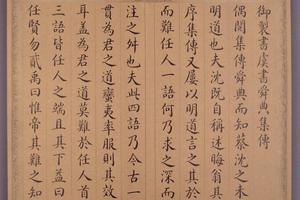 御製書虞書舜典集傳
偶閱集傳舜典而知蔡沈之未
明道也夫沈既自稱述晦翁其
序集傳又屢以明道言之其於
而難任人一語何乃求之深而
注之舛也夫此四語乃今古一
貫為君之道蠻夷率服則其效
耳蓋為君之道莫難於任人首
三語皆任人之端且其下益曰
任賢勿貳禹曰惟帝其難之知